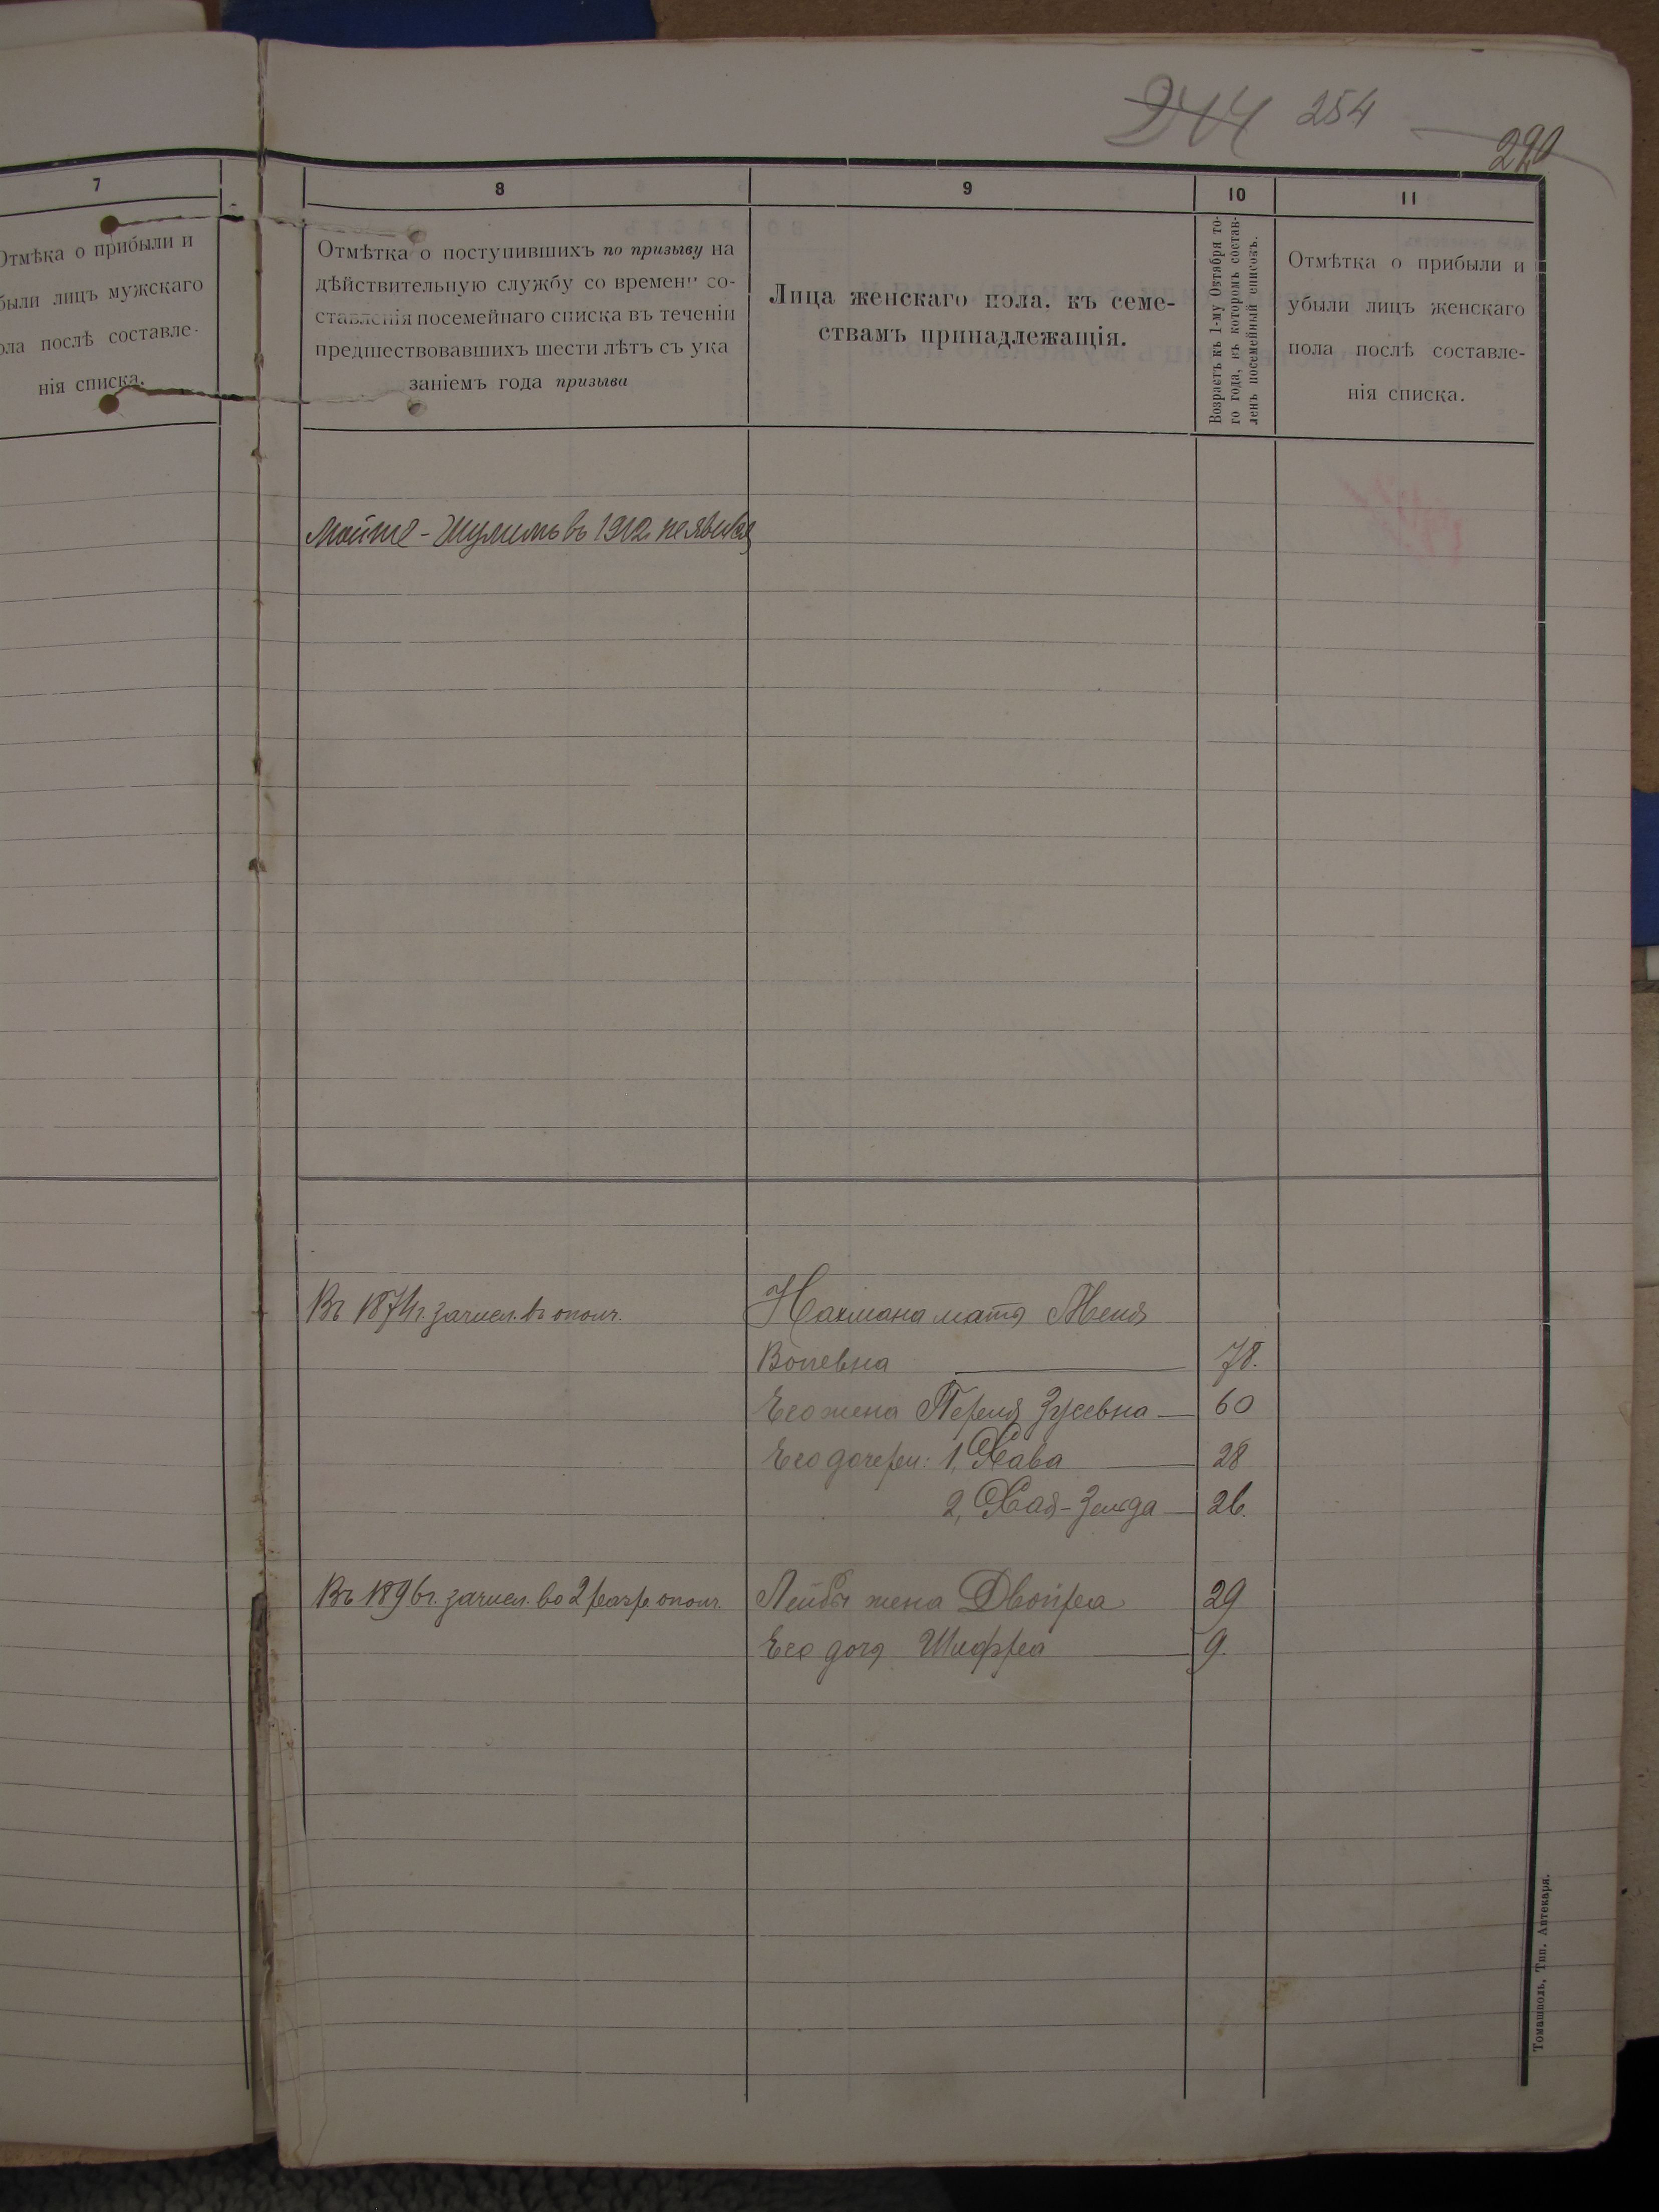 244 254
220
7
Отмѣка о прибыли и
были лицъ мужскаго
ола послѣ составле-
нія списка.
8
Отмѣтка о поступившихъ по призыву на
дѣйствительную службу со времени со-
ставленія посемейнаго списка въ теченіи
предшествовавшихъ шести лѣтъ съ ука
заніемъ года призыва
9
Лица женскаго пола. къ семе-
ствамъ принадлежащія.
10
Возрастъ къ 1-му Октября то-
го года, въ которомъ состав-
ленъ посемейный списокъ.
11
Отмѣтка о прибыли и
убыли лицъ женскаго
пола послѣ составле-
нія списка.
въ 1912 не явился
Въ 1874г. зачисл. въ ополч.
Нахмана мать
78.
Его жена Перля Зусевна 60
Его дочери: 1, Хава 28
2, Хая-Зельда 26.
Въ 1896г. зачисл. во 2 разр. ополч.
Лейбы жена Двойра 29
Его дочь Шифра 9.
Томашполь, Тип. Аптекаря.